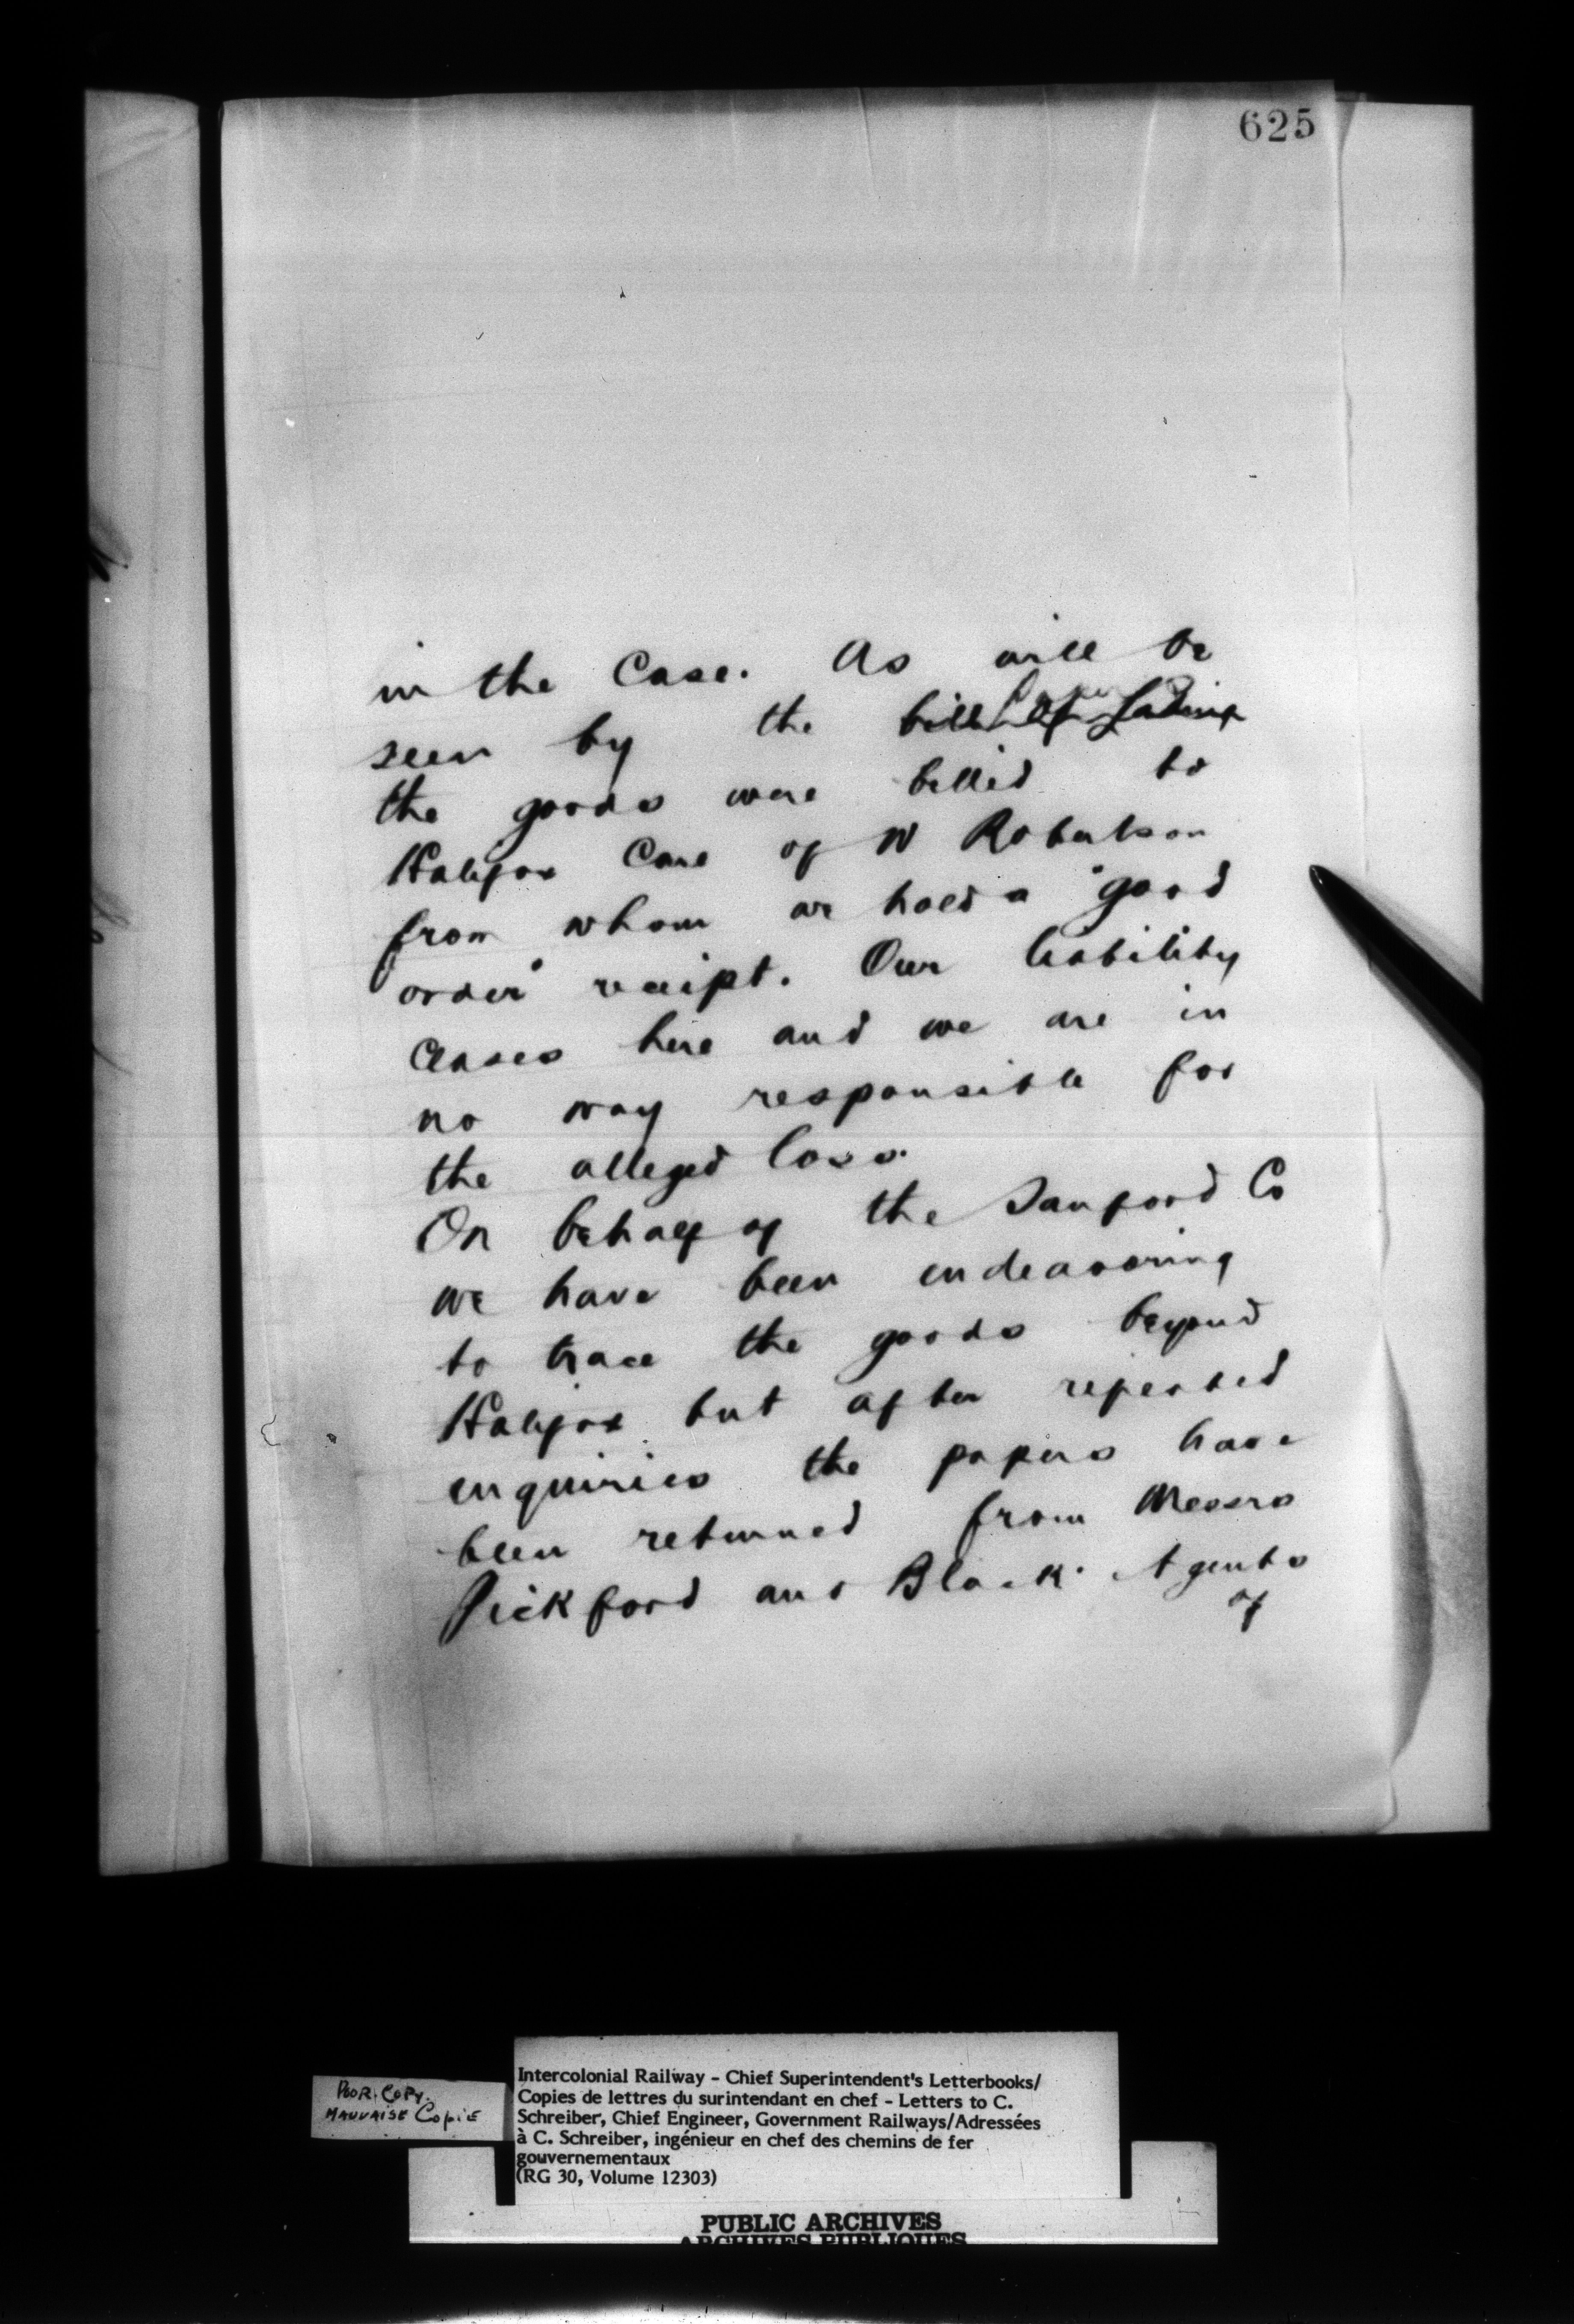 625
in the Case. As will be
seen by the bill of Lading
the goods were billed to
Halifax Care of W Robertson
from whom we hold a "good
order" receipt. Our liability
ceases here and we are in
no way responsible for
the alleged loss.
On behalf of the Sanford Co
we have been endeavoring
to trace the goods beyond
Halifax but after repeated
enquiries the papers have
been returned from Messrs
Pickford and Black Agents
of
POOR COPY.
MAUVAISE COPIE
Intercolonial Railway - Chief Superintendent's Letterbooks/
Copies de lettres du surintendant en chef - Letters to C.
Schreiber, Chief Engineer, Government Railways/Adressées
à C. Schreiber, ingénieur en chef des chemins de fer
gouvernementaux
(RG 30, Volume 12303)
PUBLIC ARCHIVES
ARCHIVES PUBLIQUES